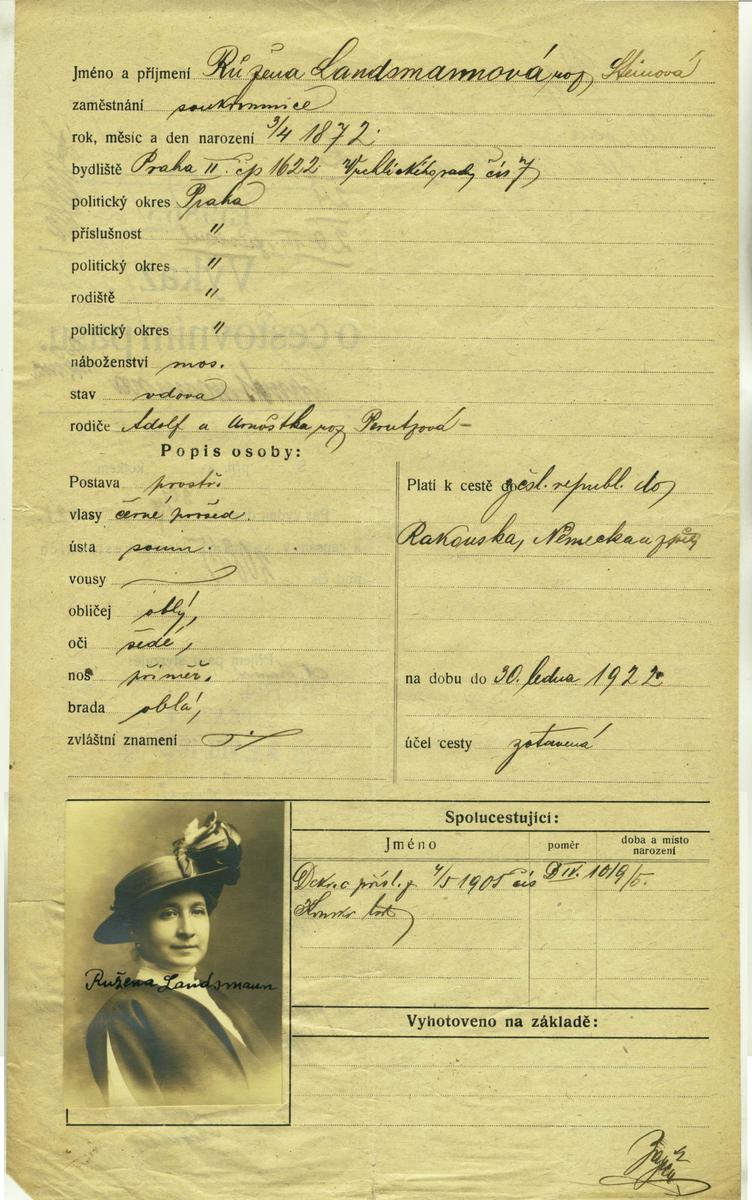 Jméno a příjmení Růžena Landsmannová roz Steinová
zaměstnání soukromnice
rok, měsíc a den narození 3/4 1872.
bydliště Praha II. čp 1622 Vrchlického sady čís 7
politický okres Praha
příslušnost "
politický okres "
rodiště "
politický okres "
náboženství mos.
stav vdova
rodiče Adolf a Arnoštka roz Perutzová -
Popis osoby:
Postava prostř.
vlasy černé prošed.
ústa soum.
vousy
obličej oblý,
oči šedé,
nos přiměř.
brada oblá,
zvláštní znamení
Platí k cestě z čsl. republ. do
Rakouska, Německa a zpět
na dobu do 30. ledna 1922.
účel cesty zotavená
Ružena Landsmann
Spolucestující:
Jméno poměr doba a místo narození
4/5 1905 čís D IV. 1019/5.
Vyhotoveno na základě: